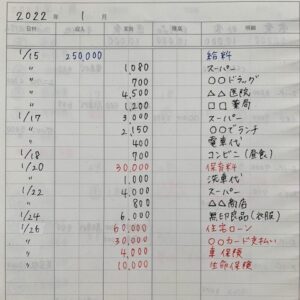 2022 年 1 月
日付 収入 支出 残高 明細
1/15 250,000 給料
〃 1,080 スーパー
〃 700 〇〇ドラッグ
〃 4,500 △△医院
〃 1,200 □□薬局
1/17 3,000 スーパー
〃 2,150 〇〇でランチ
〃 400 電車代
1/18 700 コンビニ(昼食)
1/20 30,000 保育料
〃 1,000 洗車代
1/22 4,000 スーパー
〃 800 △△商店
1/24 6,000 無印良品(衣服)
1/26 60,000 住宅ローン
〃 30,000 〇〇カード支払い
〃 4,000 車保検
〃 10,000 生命保検